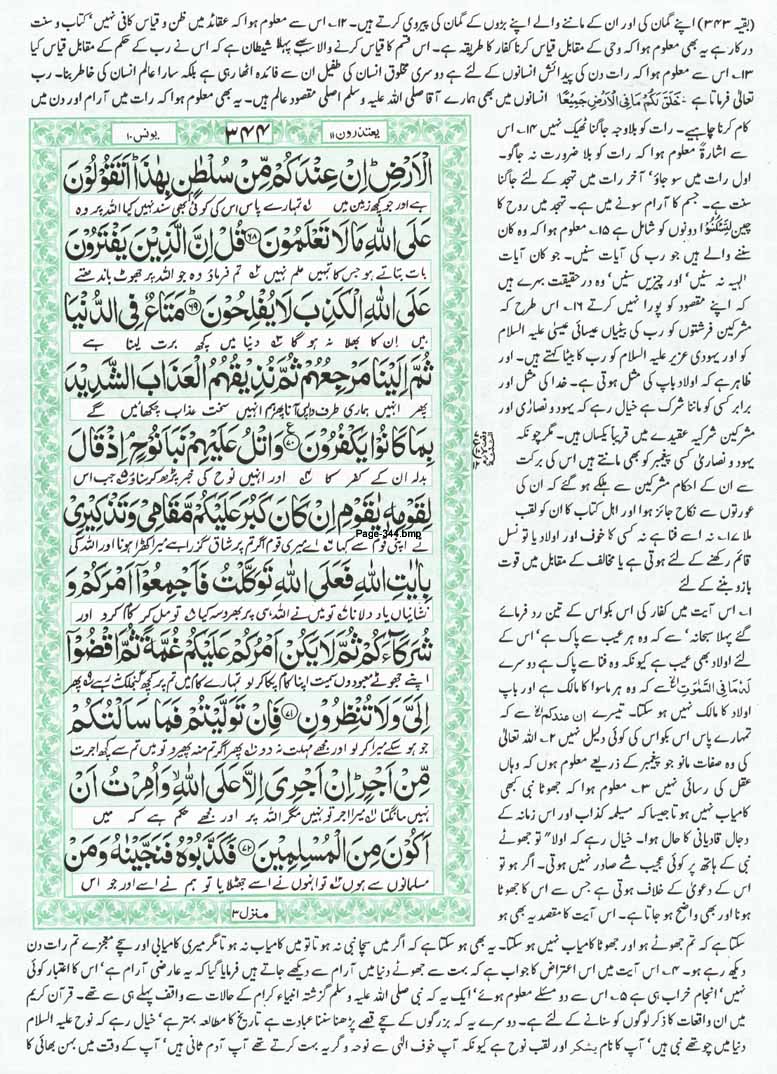 (بقیہ ۳۴۳) اپنے گمان کی اور ان کے ماننے والے اپنے بڑوں کے گمان کی پیروی کرتے ہیں۔ ۱۲۔ اس سے معلوم ہوا کہ عقائد میں ظن و قیاس کافی نہیں' کتاب و سنت
درکار ہے یہ بھی معلوم ہوا کہ وحی کے مقابل قیاس کرنا کفار کا طریقہ ہے۔ اس قسم کا قیاس کرنے والا سب سے پہلا شیطان ہے کہ اس نے رب کے حکم کے مقابل قیاس کیا
۱۳۔ اس سے معلوم ہوا کہ رات دن کی پیدائش انسانوں کے لئے ہے دوسری مخلوق انسان کی طفیل ان سے فائدہ اٹھا رہی ہے بلکہ سارا عالم انسان کی خاطر بنا۔ رب
تعالیٰ فرماتا ہے خَلَقَ لَكُمْ مَّا فِي الْاَرْضِ جَمِيْعًا انسانوں میں بھی ہمارے آقا صلی اللہ علیہ وسلم اصلی مقصود عالم ہیں۔ یہ بھی معلوم ہوا کہ رات میں آرام اور دن میں
کام کرنا چاہیے۔ رات کو بلاوجہ جاگنا ٹھیک نہیں ۱۴۔ اس
سے اشارۃً معلوم ہوا کہ رات کو بلا ضرورت نہ جاگو۔
اول رات میں سو جاؤ' آخر رات میں تہجد کے لئے جاگنا
سنت ہے۔ جسم کا آرام سونے میں ہے۔ تہجد میں روح کا
چین لِتَسْكُنُوْا دونوں کو شامل ہے ۱۵۔ معلوم ہوا کہ وہ کان
سننے والے ہیں جو رب کی آیات سنیں۔ جو کان آیات
الٰہیہ نہ سنیں' اور چیزیں سنیں' وہ درحقیقت بہرے ہیں
کہ اپنے مقصود کو پورا نہیں کرتے ۱۶۔ اس طرح کہ
مشرکین فرشتوں کو رب کی بیٹیاں عیسائی عیسیٰ علیہ السلام
کو اور یہودی عزیر علیہ السلام کو رب کا بیٹا کہتے ہیں۔ اور
ظاہر ہے کہ اولاد باپ کی مثل ہوتی ہے۔ خدا کی مثل اور
برابر کسی کو ماننا شرک ہے خیال رہے کہ یہود و نصاریٰ اور
مشرکین شرکیہ عقیدے میں قریباً یکساں ہیں۔ مگر چونکہ
یہود و نصاریٰ کسی پیغمبر کو بھی مانتے ہیں اس کی برکت
سے ان کے احکام مشرکین سے ہلکے ہو گئے کہ ان کی
عورتوں سے نکاح جائز ہوا اور اہل کتاب کا ان کو لقب
ملا ۱۷۔ نہ اسے فنا ہے نہ کسی کا خوف اور اولاد یا تو نسل
قائم رکھنے کے لئے ہوتی ہے یا مخالف کے مقابل میں قوت
بازو بننے کے لئے
۱۔ اس آیت میں کفار کی اس بکواس کے تین رد فرمائے
گئے پہلا سبحانہ' سے کہ وہ ہر عیب سے پاک ہے' اس کے
لئے اولاد بھی عیب ہے کیونکہ وہ فنا سے پاک ہے دوسرے
لَهٗ مَا فِي السَّمٰوٰتِ سے کہ وہ ہر ماسوا کا مالک ہے اور باپ
اولاد کا مالک نہیں ہو سکتا۔ تیسرے اِنْ عِنْدَكُمْ سے کہ
تمہارے پاس اس بکواس کی کوئی دلیل نہیں ۲۔ اللہ تعالیٰ
کی وہ صفات مانو جو پیغمبر کے ذریعے معلوم ہوں کہ وہاں
عقل کی رسائی نہیں ۳۔ معلوم ہوا کہ جھوٹا نبی کبھی
کامیاب نہیں ہوتا جیسا کہ مسیلمہ کذاب اور اس زمانہ کے
دجال قادیانی کا حال ہوا۔ خیال رہے کہ اولا" تو جھوٹے
نبی کے ہاتھ پر کوئی عجیب شے صادر نہیں ہوتی۔ اگر ہو تو
اس کے دعویٰ کے خلاف ہوتی ہے جس سے اس کا جھوٹا
ہونا اور بھی واضح ہو جاتا ہے۔ اس آیت کا مقصد یہ بھی ہو
یونس ۱۰
۳۴۴
یعتذرون ۱۱
الْاَرْضِ اِنْ عِنْدَكُمْ مِّنْ سُلْطٰنٍۭ بِهٰذَا اَتَقُوْلُوْنَ
ہے اور جو کچھ زمین میں تمہارے پاس اس کی کوئی بھی سند نہیں کیا اللہ پر وہ
عَلَى اللّٰهِ مَا لَا تَعْلَمُوْنَ ۶۸ قُلْ اِنَّ الَّذِيْنَ يَفْتَرُوْنَ
بات بتاتے ہو جس کا تمہیں علم نہیں تم فرماؤ وہ جو اللہ پر جھوٹ باندھتے
عَلَى اللّٰهِ الْكَذِبَ لَا يُفْلِحُوْنَ ۶۹ مَتَاعٌ فِى الدُّنْيَا
ہیں ان کا بھلا نہ ہو گا دنیا میں کچھ برت لینا ہے
ثُمَّ اِلَيْنَا مَرْجِعُهُمْ ثُمَّ نُذِيْقُهُمُ الْعَذَابَ الشَّدِيْدَ
پھر انہیں ہماری طرف واپس آنا پھر ہم انہیں سخت عذاب چکھائیں گے
بِمَا كَانُوْا يَكْفُرُوْنَ ۷۰ وَاتْلُ عَلَيْهِمْ نَبَاَ نُوْحٍ اِذْ قَالَ
بدلہ ان کے کفر کا اور انہیں نوح کی خبر پڑھ کر سناؤ جب اس
لِقَوْمِهٖ يٰقَوْمِ اِنْ كَانَ كَبُرَ عَلَيْكُمْ مَّقَامِىْ وَتَذْكِيْرِىْ
نے اپنی قوم سے کہا اے میری قوم اگر تم پر شاق گزرا ہے میرا کھڑا ہونا اور اللہ کی
Page-344.bmp
بِاٰيٰتِ اللّٰهِ فَعَلَى اللّٰهِ تَوَكَّلْتُ فَاَجْمِعُوْٓا اَمْرَكُمْ وَ
نشانیاں یاد دلانا تو میں نے اللہ ہی پر بھروسہ کیا تو مل کر کام کرو اور
شُرَكَآءَكُمْ ثُمَّ لَا يَكُنْ اَمْرُكُمْ عَلَيْكُمْ غُمَّةً ثُمَّ اقْضُوْٓا
اپنے جھوٹے معبودوں سمیت اپنا کام پکا کر لو تمہارے کام میں تم پر کچھ گنجلک نہ رہے پھر
اِلَىَّ وَلَا تُنْظِرُوْنِ ۷۱ فَاِنْ تَوَلَّيْتُمْ فَمَا سَاَلْتُكُمْ
جو ہو سکے میرا کر لو اور مجھے مہلت نہ دو پھر اگر تم منہ پھیرو تو میں تم سے کچھ اجرت
مِّنْ اَجْرٍ اِنْ اَجْرِىَ اِلَّا عَلَى اللّٰهِ وَاُمِرْتُ اَنْ
نہیں مانگتا میرا اجر تو نہیں مگر اللہ پر اور مجھے حکم ہے کہ میں
اَكُوْنَ مِنَ الْمُسْلِمِيْنَ ۷۲ فَكَذَّبُوْهُ فَنَجَّيْنٰهُ وَمَنْ
مسلمانوں سے ہوں تو انہوں نے اسے جھٹلایا تو ہم نے اسے اور جو اس
منزل ۳
سکتا ہے کہ تم جھوٹے ہو اور جھوٹا کامیاب نہیں ہو سکتا۔ یہ بھی ہو سکتا ہے کہ اگر میں سچا نبی نہ ہوتا تو میں کامیاب نہ ہوتا مگر میری کامیابی اور سچے معجزے تم رات دن
دیکھ رہے ہو۔ ۴۔ اس آیت میں اس اعتراض کا جواب ہے کہ بہت سے جھوٹے دنیا میں آرام سے دیکھے جاتے ہیں فرمایا گیا کہ یہ عارضی آرام ہے' اس کا اعتبار کوئی
نہیں' انجام خراب ہی ہے ۵۔ اس سے دو مسئلے معلوم ہوئے' ایک یہ کہ نبی صلی اللہ علیہ وسلم گزشتہ انبیاء کرام کے حالات سے واقف پہلے ہی سے تھے۔ قرآن کریم
میں ان واقعات کا ذکر لوگوں کو سنانے کے لئے ہے۔ دوسرے یہ کہ بزرگوں کے سچے قصے پڑھنا سننا عبادت ہے تاریخ کا مطالعہ بہتر ہے' خیال رہے کہ نوح علیہ السلام
دنیا میں چوتھے نبی ہیں' آپ کا نام یشکر اور لقب نوح ہے کیونکہ آپ خوف الٰہی سے نوحہ و گریہ بہت کرتے تھے آپ آدم ثانی ہیں' آپ کے وقت میں بہن بھائی کا